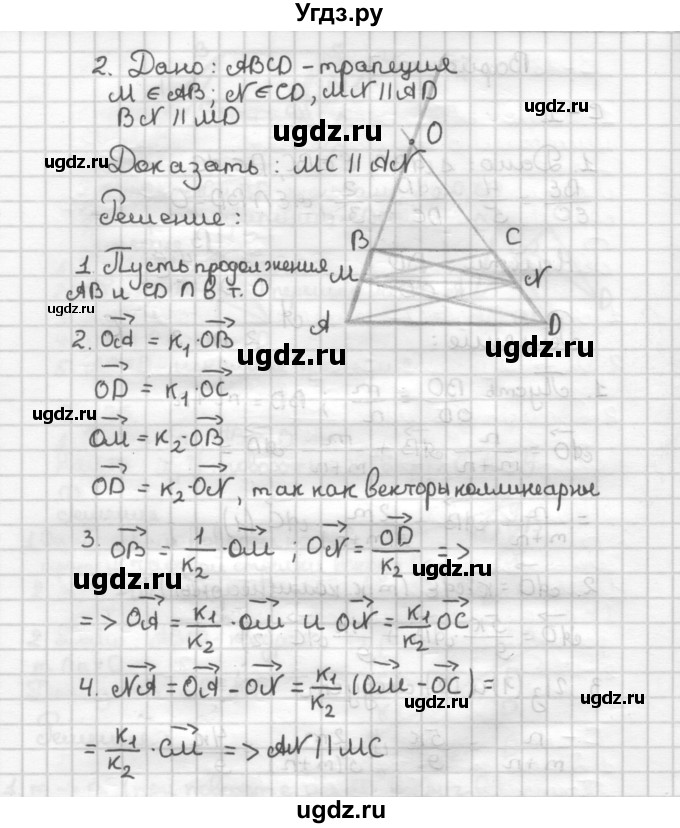 Угдз.ру
2. Дано: ABCD - трапеция
M ∈ AB; N ∈ CD, MN || AD
BN || MD
ugdz.ru
ugdz.ru
O
ugdz.ru
Доказать: MC || AN
Решение:
B
C
1. Пусть продолжения
M
N
AB и CD ∩ в т. O
ugdz.ru
A
D
2. OA = k₁·OB
ugdz.ru
ugdz.ru
OD = k₁·OC
ugdz.ru
OM = k₂·OB
ugdz.ru
OD = k₂·ON, так как векторы коллинеарны
3. OB = 1/k₂ · OM; ON = OD/k₂ =>
ugdz.ru
ugdz.ru
=> OA = k₁/k₂ · OM и ON = k₁/k₂ OC
4. NA = OA - ON = k₁/k₂ (OM - OC) =
ugdz.ru
ugdz.ru
= k₁/k₂ · CM => AN || MC
ugdz.ru
ugdz.ru